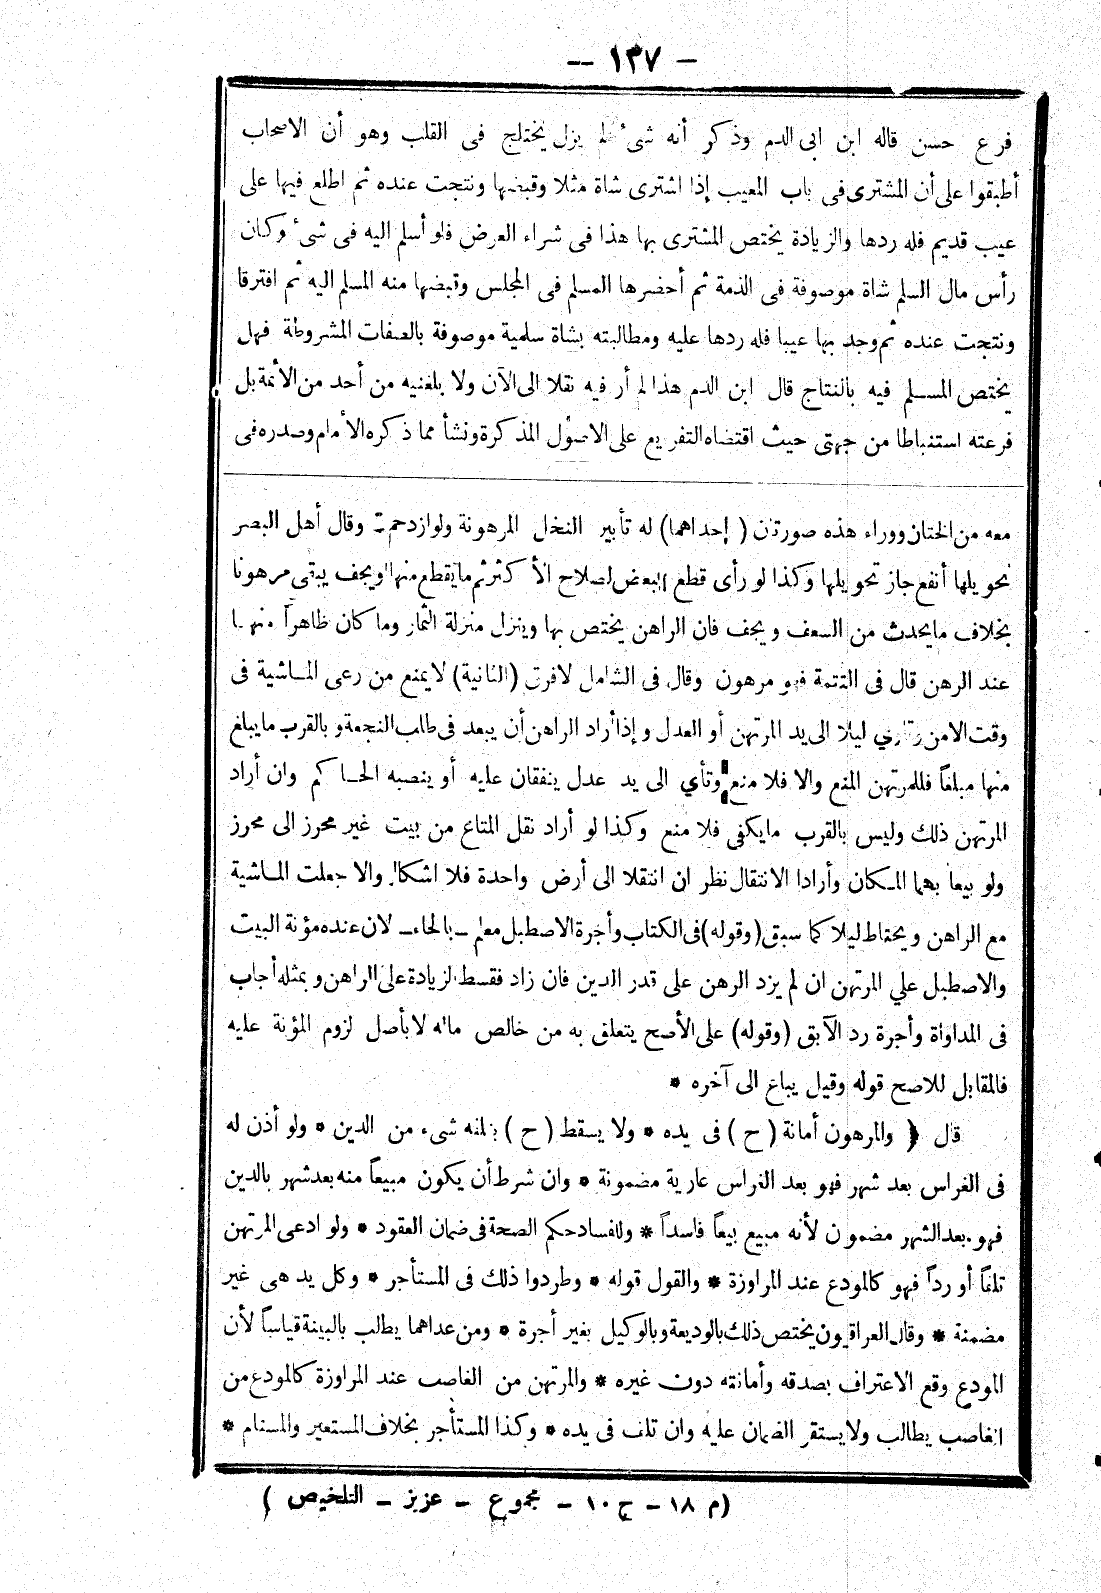 - ١٣٧ --
فرع حسن قاله ابن ابى الدم وذكر أنه شئ لم يزل يختلج فى القلب وهو أن الاصحاب
أطبقوا على أن المشترى فى باب المعيب إذا اشترى شاة مثلا وقبضها ونتجت عنده ثم اطلع فيها على
عيب قديم فله ردها والزيادة يختص المشترى بها هذا فى شراء العرض فلو أسلم اليه فى شئ وكان
رأس مال السلم شاة موصوفة فى الذمة ثم أحضرها المسلم فى المجلس وقبضها منه المسلم اليه ثم افترقا
ونتجت عنده ثم وجد بها عيبا فله ردها عليه ومطالبته بشاة سلمية موصوفة بالصفات المشروطة فهل
يختص المسلم فيه بالنتاج قال ابن الدم هذا لم أر فيه نقلا الى الآن ولا بلغنيه من أحد من الأئمة بل
فرعته استنباطا من جهتى حيث اقتضاه التفريع على الاصول المذكرة ونشأ مما ذكره الأمام وصدره فى
معه من الختان ووراء هذه صورتان (إحداهما) له تأبير النخل المرهونة ولو ازدحمت وقال أهل البصر
تحويلها أنفع جاز تحويلها وكذا لو رأى قطع البعض لصلاح الأكثر ثم ما يقطع منها ويجف يبقى مرهونا
بخلاف ما يحدث من السعف ويجف فان الراهن يختص بها وينزل منزلة الثمار وما كان ظاهراً منها
عند الرهن قال فى التتمة فهو مرهون وقال فى الشامل لا فرق (الثانية) لا يمنع من رعى الماشية فى
وقت الامن وتأوي ليلا الى يد المرتهن أو العدل وإذا أراد الراهن أن يبعد فى طلب النجعة وبالقرب ما يبلغ
منها مبلغاً فللمرتهن المنع والا فلا منع وتأي الى يد عدل يتفقان عليه أو ينصبه الحاكم وان أراد
المرتهن ذلك وليس بالقرب ما يكفى فلا منع وكذا لو أراد نقل المتاع من بيت غير محرز الى محرز
ولو بيعا بهما المكان وأرادا الانتقال نظر ان انتقلا الى أرض واحدة فلا اشكال والا جعلت الماشية
مع الراهن ويحتاط ليلا كما سبق (وقوله) فى الكتاب وأجرة الاصطبل معلم - بالحاء - لان عنده مؤنة البيت
والاصطبل علي المرتهن ان لم يزد الرهن على قدر الدين فان زاد فقسط الزيادة على الراهن وبمثله أجاب
فى المداواة وأجرة رد الآبق (وقوله) على الأصح يتعلق به من خالص ماله لا بأصل لزوم المؤنة عليه
فالمقابل للاصح قوله وقيل يباع الى آخره *
قال ﴿ والمرهون أمانة (ح) فى يده * ولا يسقط (ح) بتلفه شىء من الدين * ولو أذن له
فى الغراس بعد شهر فهو بعد الغراس عارية مضمونة * وان شرط أن يكون مبيعاً منه بعد شهر بالدين
فهو بعد الشهر مضمون لأنه مبيع بيعاً فاسداً * وللفساد حكم الصحة فى ضمان العقود * ولو ادعى المرتهن
تلفاً أو رداً فهو كالمودع عند المراوزة * والقول قوله * وطردوا ذلك فى المستأجر * وكل يد هى غير
مضمنة * وقال العراقيون يختص ذلك بالوديعة وبالوكيل بغير أجرة * ومن عداهما يطالب بالبينة قياساً لأن
المودع وقع الاعتراف بصدقه وأمانته دون غيره * والمرتهن من الغاصب عند المراوزة كالمودع من
الغاصب يطالب ولا يستقر الضمان عليه وان تلف فى يده * وكذا المستأجر بخلاف المستعير والمستام *
(م ١٨ - ج ١٠ - مجموع - عزيز - التلخيص)